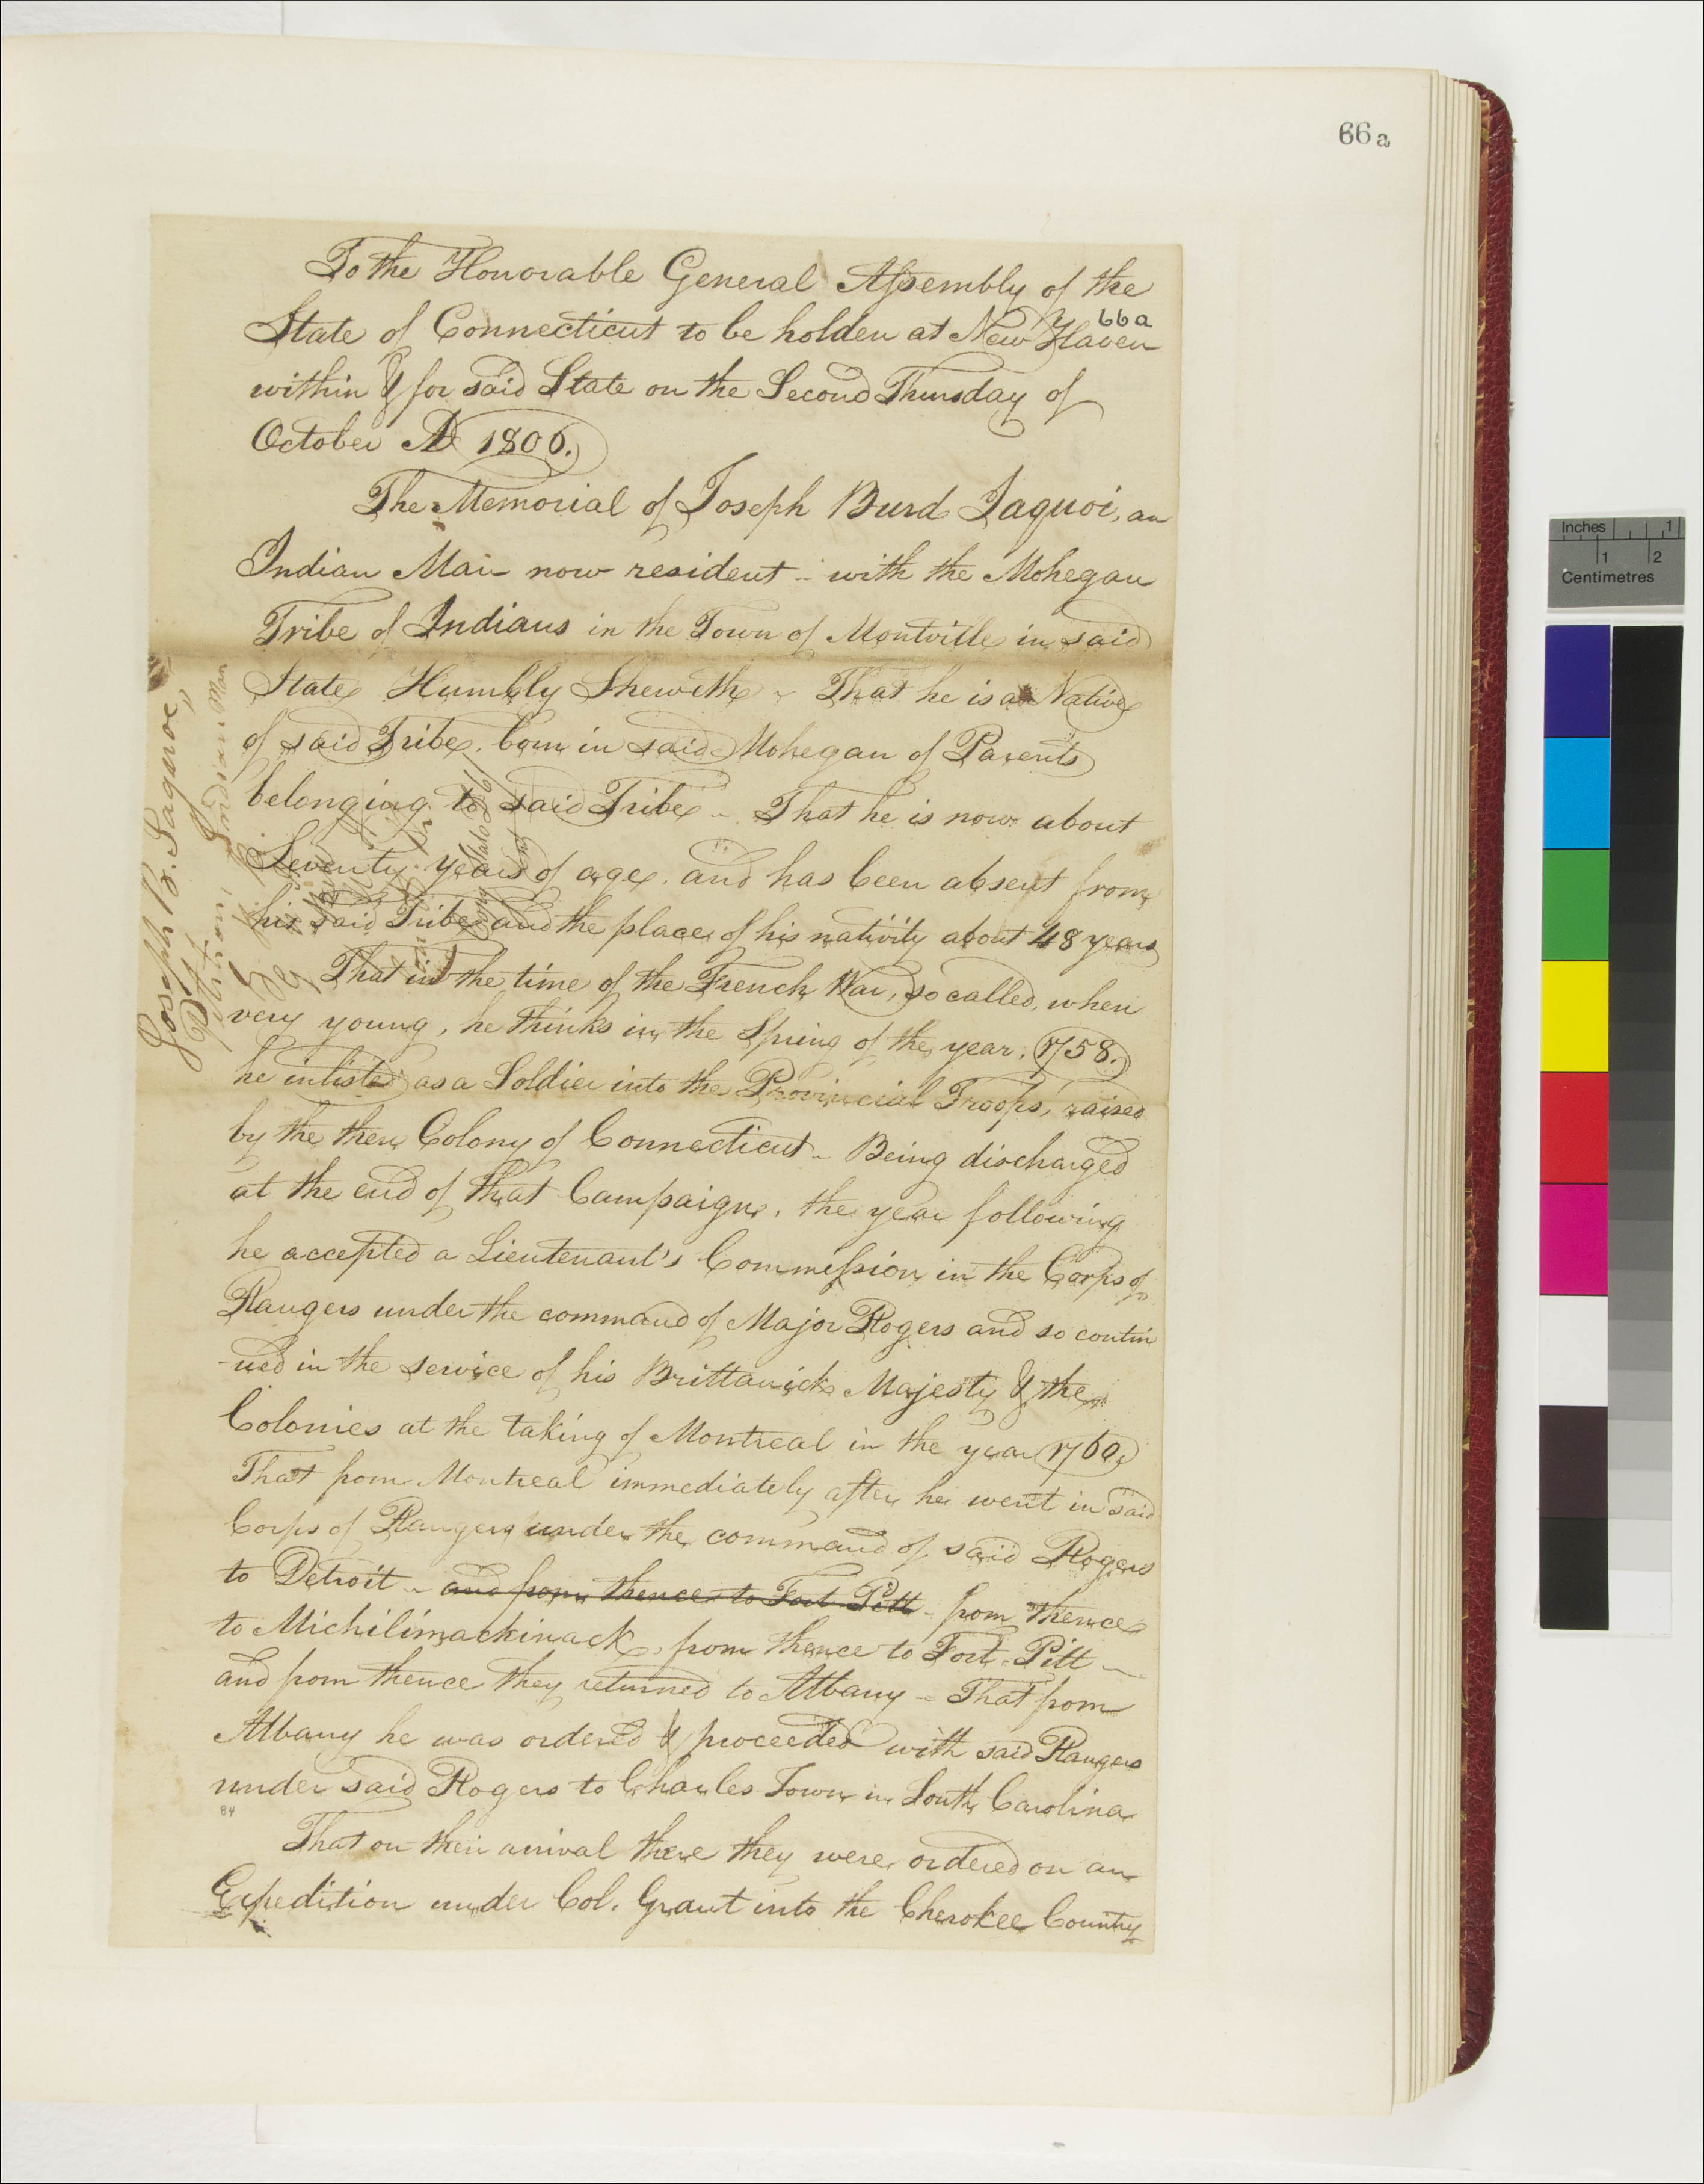 66a
To the Honorable General Assembly of the
66a
State of Connecticut to be holden at New Haven
within & for said State on the Second Thursday of
October AD 1806.
The Memorial of Joseph Burd Jaquoi, an
Indian Man now resident - with the Mohegan
Tribe of Indians in the Town of Montville in said
State Humbly Sheweth - That he is a Native
of said Tribe, born in said Mohegan of Parents
belonging to said Tribe - That he is now about
Seventy years of age, and has been absent from
his said Tribe and the place of his nativity about 48 years
That in the time of the French War, so called, when
very young, he thinks in the Spring of the year, 1758.
he inlisted as a Soldier into the Provincial Troops, raised
by the then Colony of Connecticut - Being discharged
at the end of that Campaign, the year following
he accepted a Lieutenant's Commission in the Corps of
Rangers under the command of Major Rogers and so contin
-ued in the service of his Brittanick Majesty & the
Colonies at the taking of Montreal in the year 1760,
That from Montreal immediately after he went in said
Corps of Rangers under the command of said Rogers
to Detroit - and from thence to Fort Pitt - from thence
to Michilimackinack, from thence to Fort Pitt -
and from thence they returned to Albany - That from
Albany he was ordered & proceeded with said Rangers
under said Rogers to Charles Town in South Carolina
84
That on their arrival there they were ordered on an
Expedition under Col. Grant into the Cherokee Country
Joseph B. Jaquoe,,
Petition
Indian Man